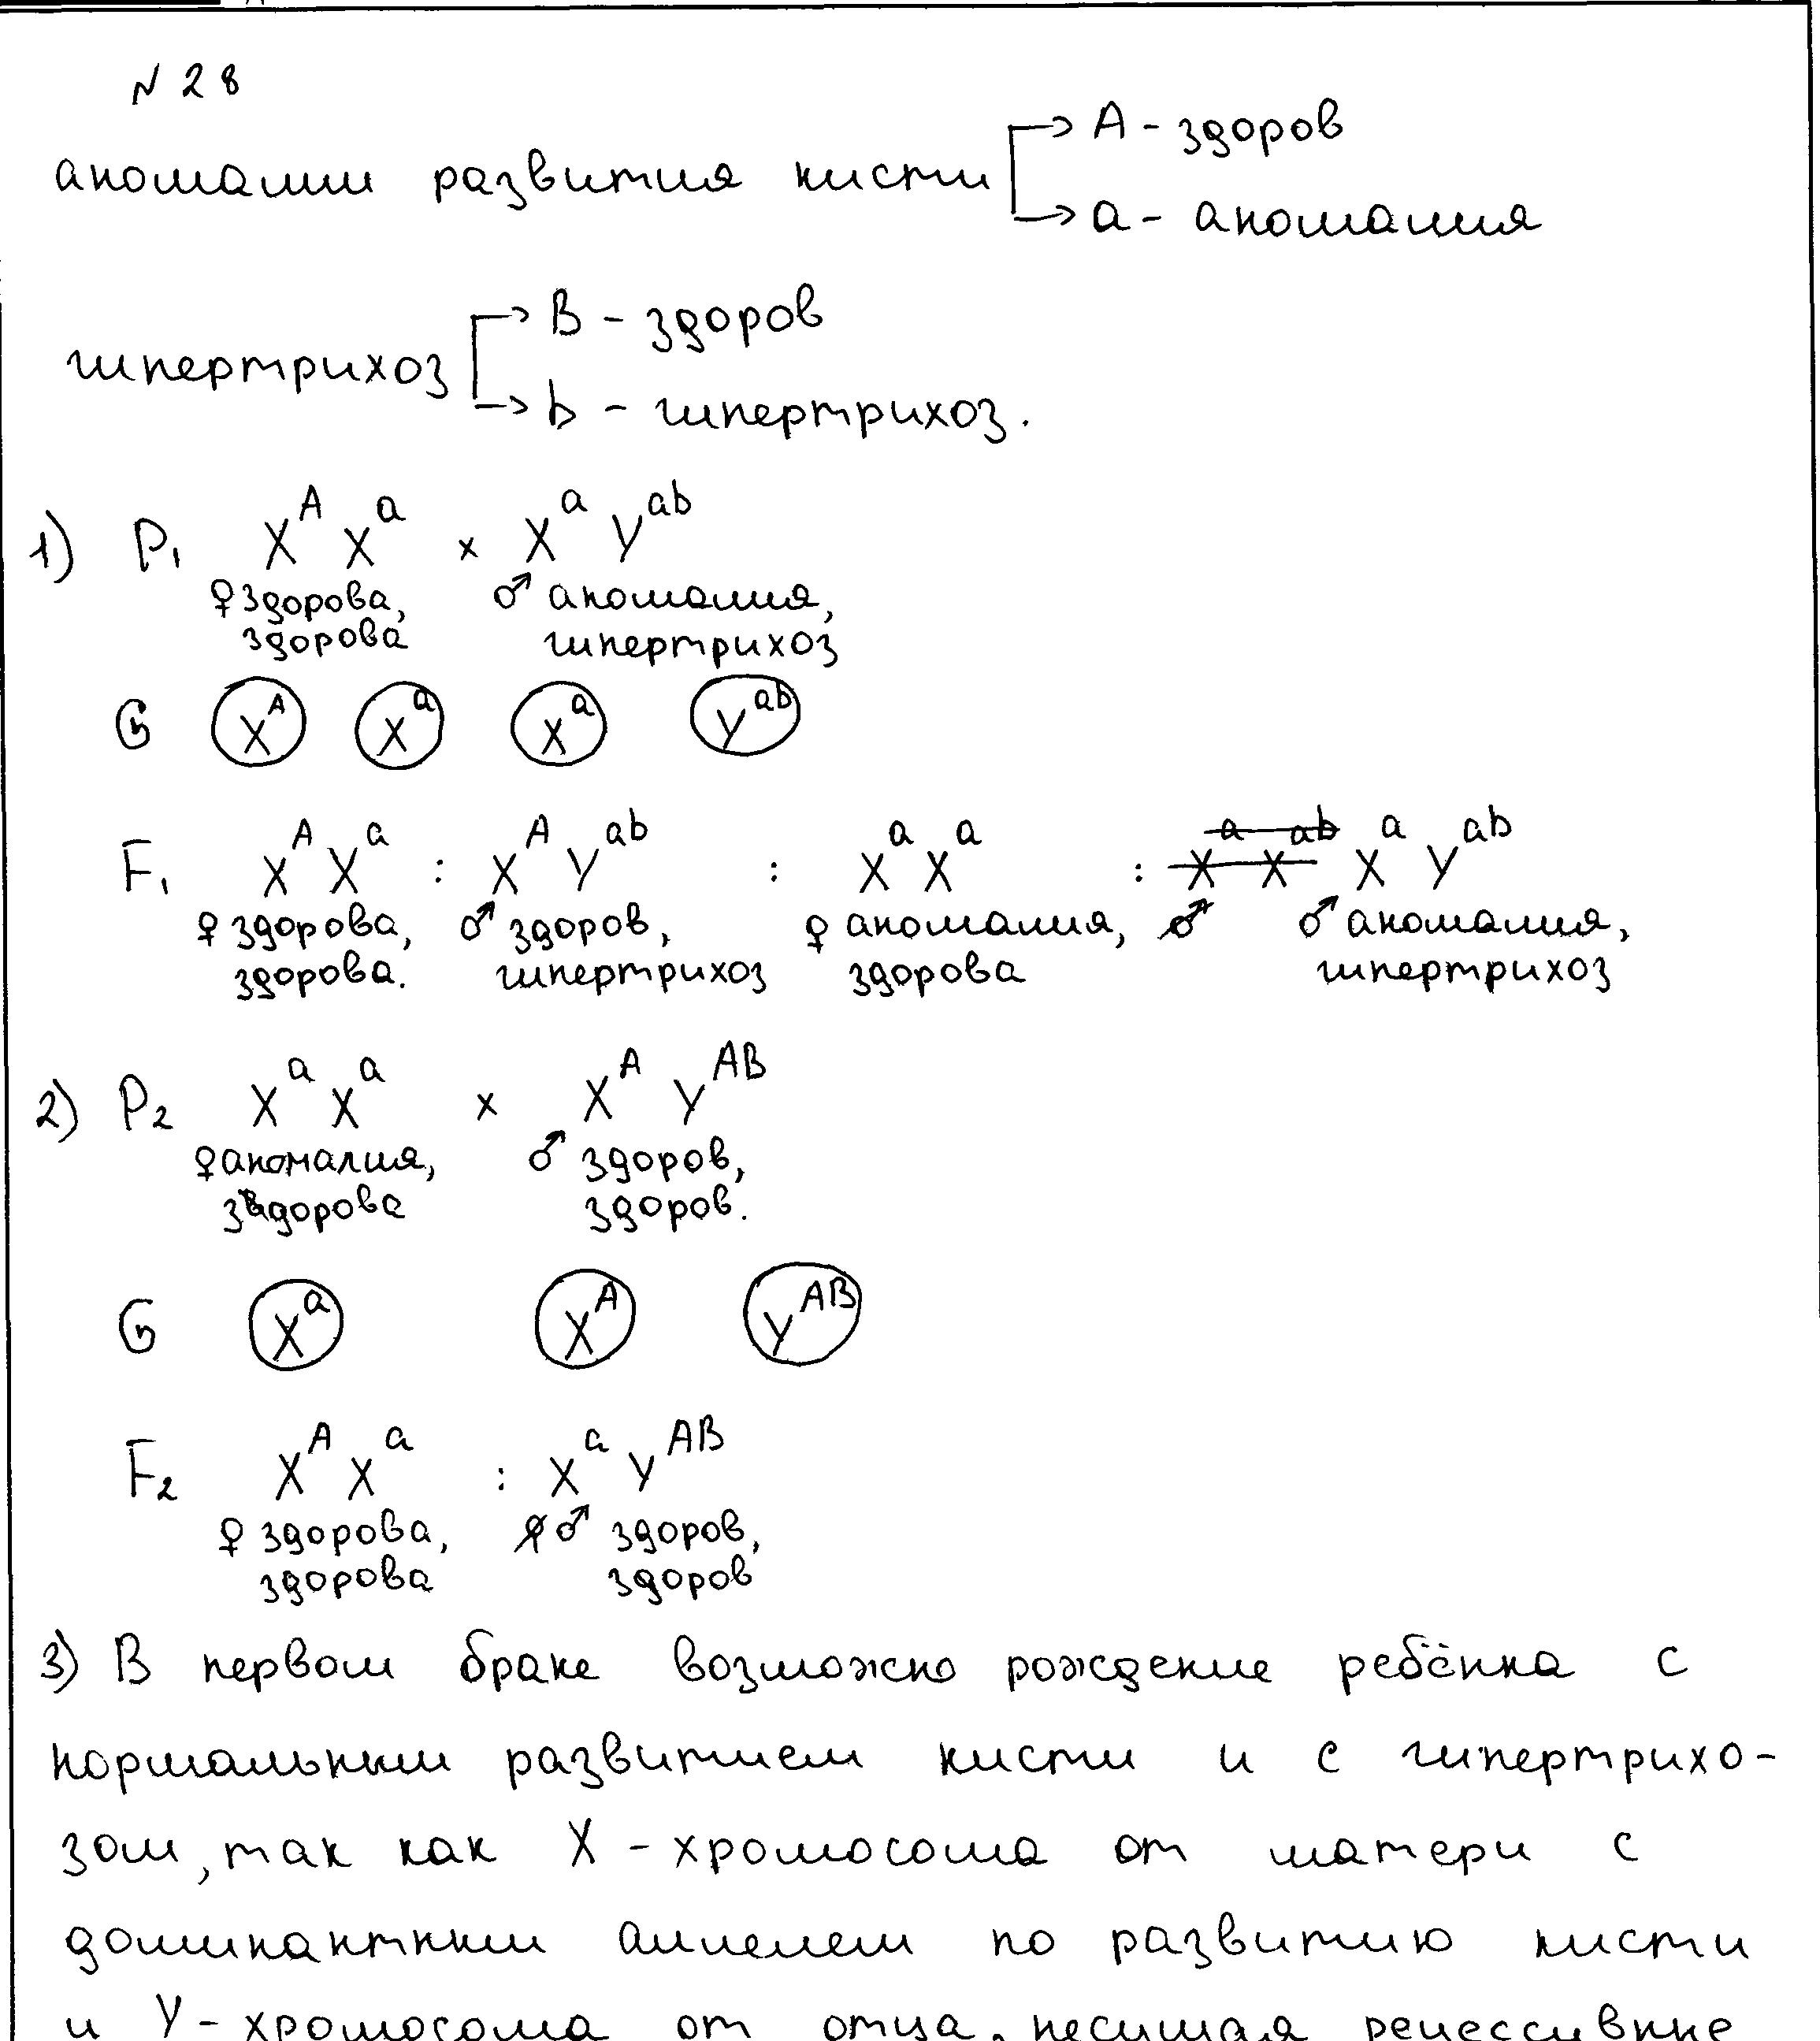 N 28
аномалии развития кисти
A - здоров
a - аномалия
гипертрихоз
B - здоров
b - гипертрихоз.
1) P₁ X^A X^a × X^a Y^ab
♀ здорова, ♂ аномалия,
здорова гипертрихоз
G X^A X^a X^a Y^ab
F₁ X^A X^a : X^A Y^ab : X^a X^a : X^a X^ab X^a Y^ab
♀ здорова, ♂ здоров, ♀ аномалия, ♂ ♂ аномалия,
здорова. гипертрихоз здорова гипертрихоз
2) P₂ X^a X^a × X^A Y^AB
♀ аномалия, ♂ здоров,
здорова здоров.
G X^a X^A Y^AB
F₂ X^A X^a : X^a Y^AB
♀ здорова, ♀ ♂ здоров,
здорова здоров
3) В первом браке возможно рождение ребёнка с
нормальным развитием кисти и с гипертрихо-
зом, так как X - хромосома от матери с
доминантным аллелем по развитию кисти
и Y - хромосома от отца, несущая рецессивные